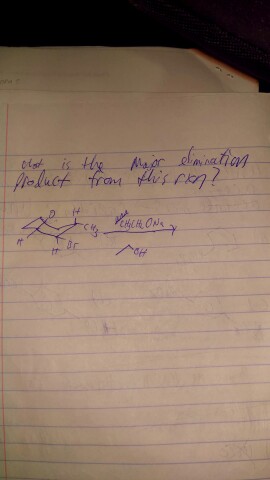 what is the major elimination
product from this rxn?
D H
CH3 CH3CH2ONa
H Br
H OH